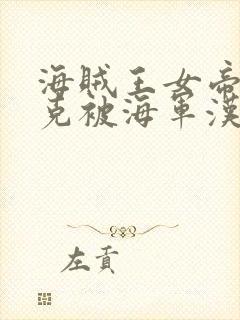 海賊王女帝
克被海軍漢
左貢